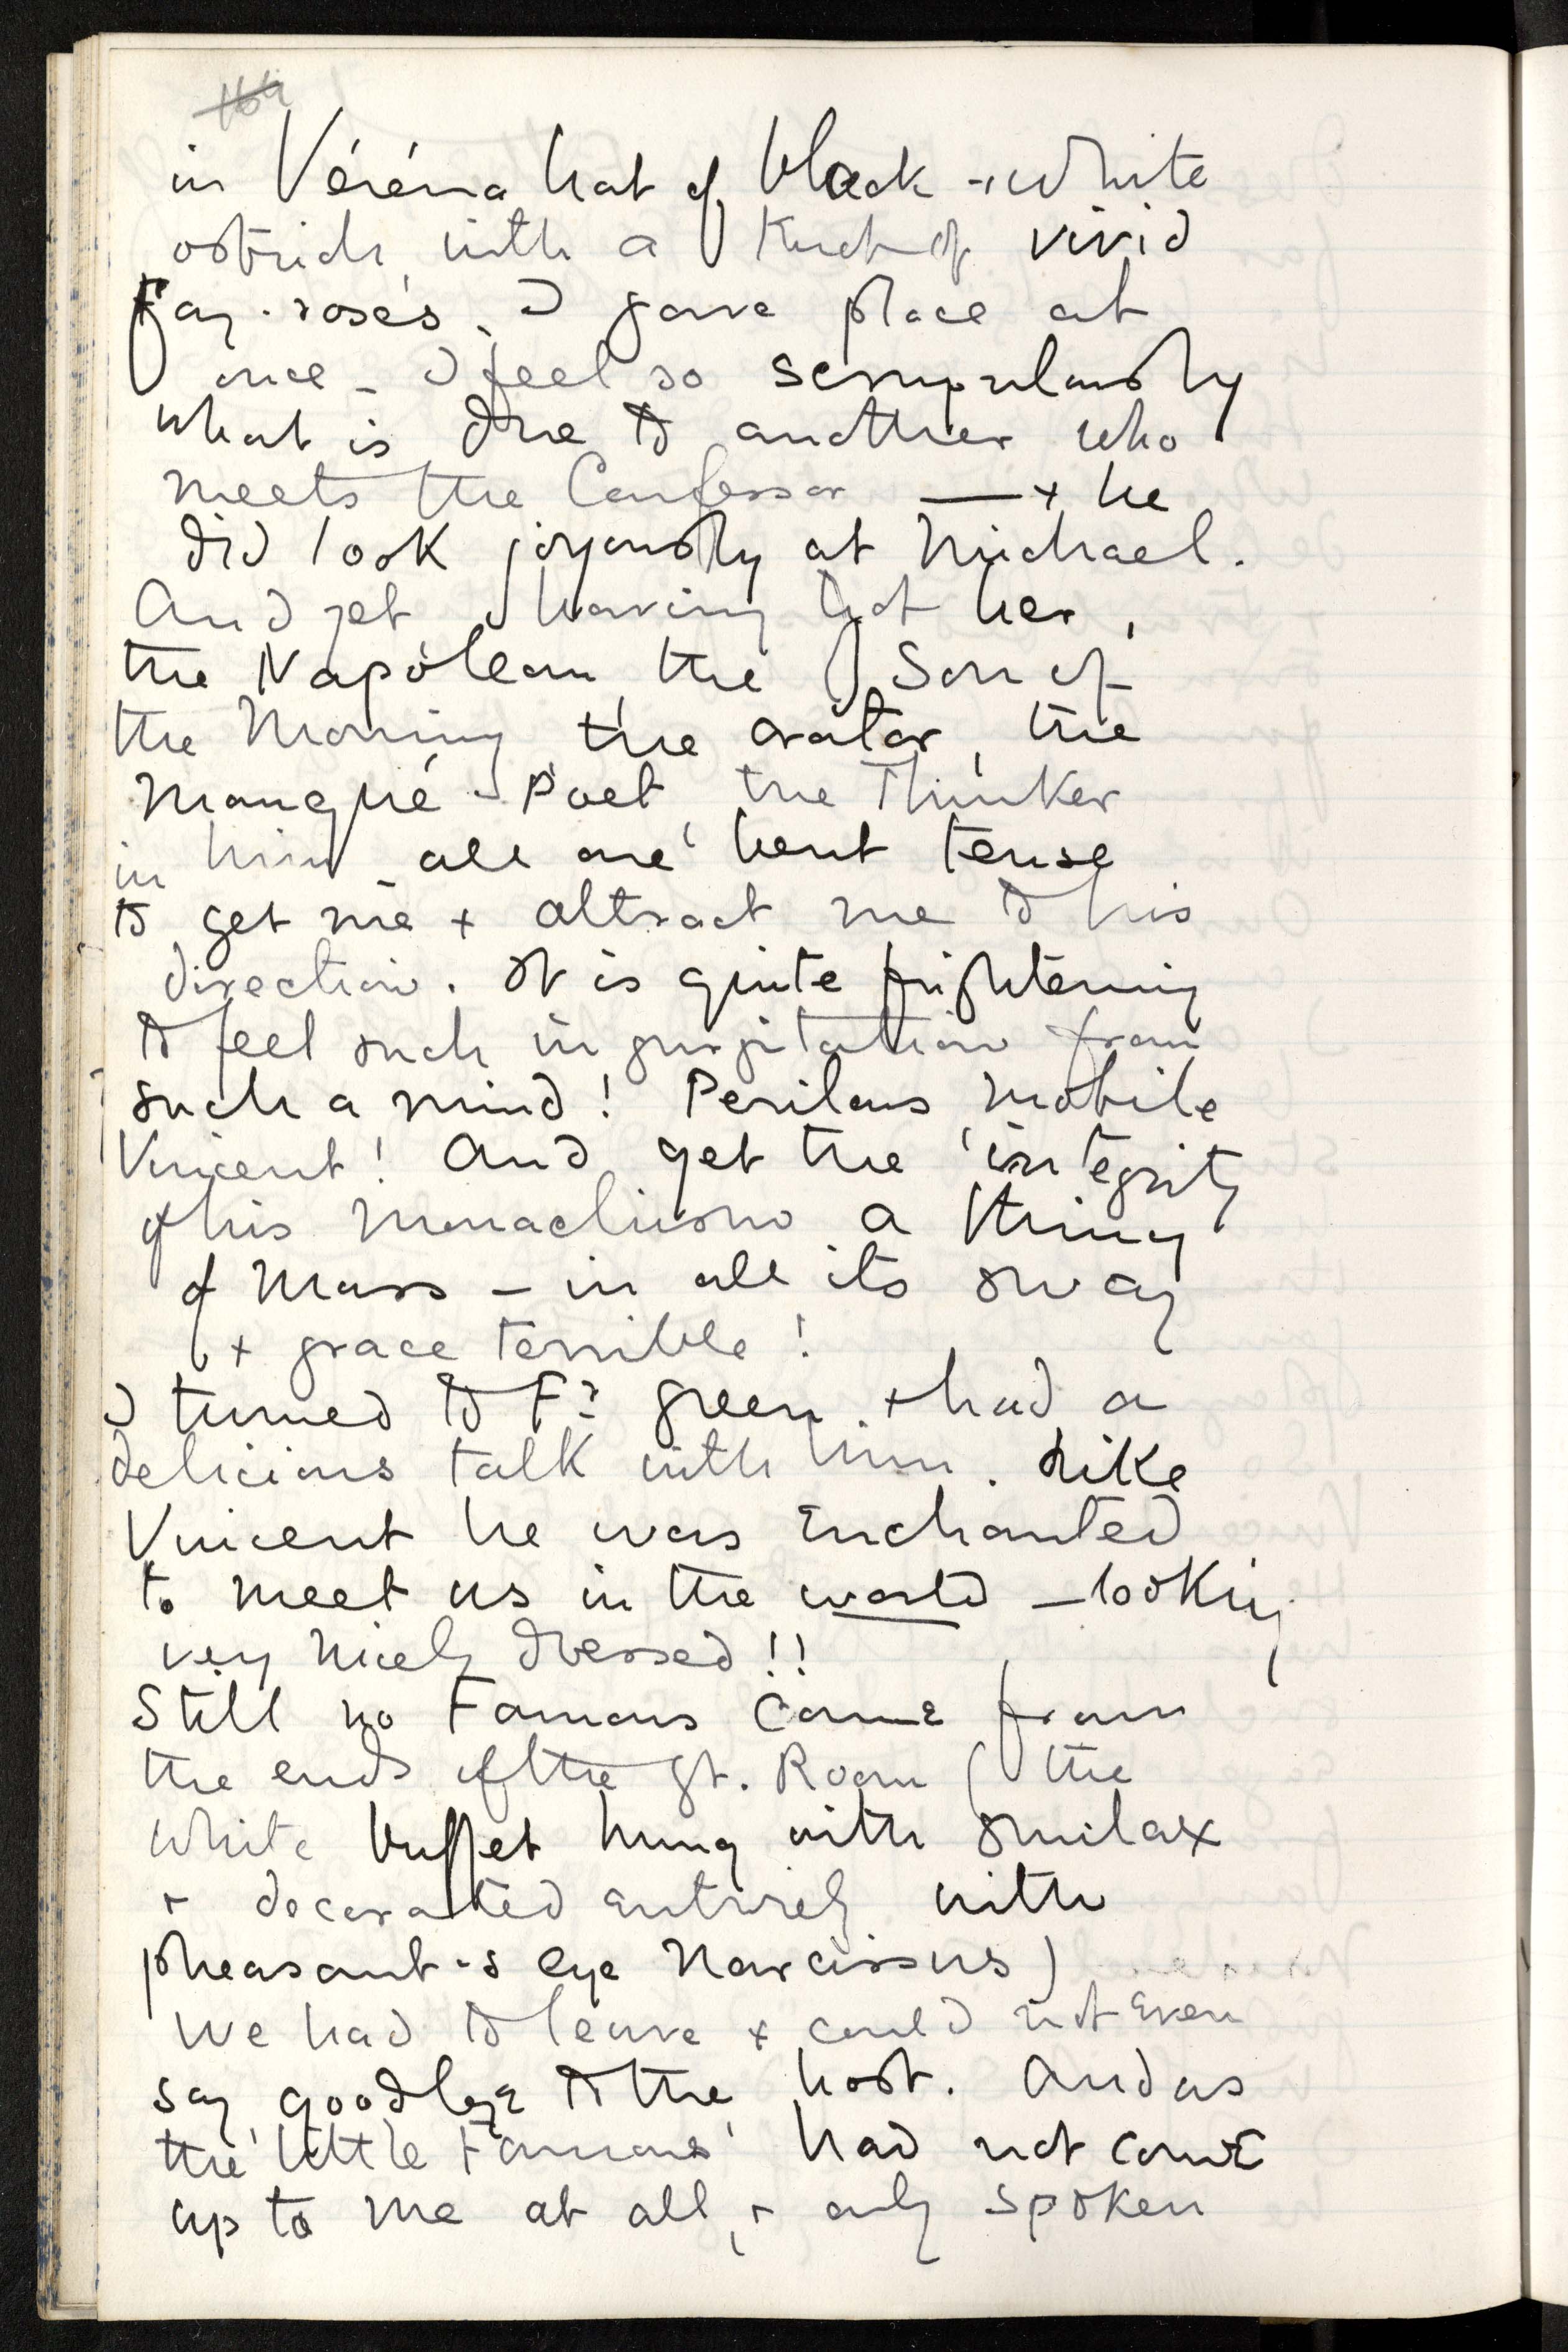 164
in Véréna hat of black + white
ostrich with a Knot of vivid
Fay-roses. I gave place at
once – I feel so scrupulously
what is due to another who
meets the Confessor — + he
did look joyously at Michael.
And yet having got her,
the Napoleon, the Son of
the Morning, the orator, the
Manqué-Poet, the Thinker
in him all are bent tense
to get me + attract me to his
direction. It is quite frightening
to feel such ingurgitation from
such a mind! Perilous, mobile
Vincent! And yet the integrity
of his monachism a thing
of Mass – in all its sway
+ grace terrible!
I turned to Fr. Green + had a
delicious talk with him. Like
Vincent he was enchanted
to meet us in the world – looking
very nicely dressed!!
Still no Famous came from
the ends of the Gt. Room (the
white buffet hung with smilax
+ decorated entirely with
pheasant-s eye Narcissus)
We had to leave + could not even
say goodbye to the host. And as
the 'little Famous' had not come
up to me at all, + only spoken